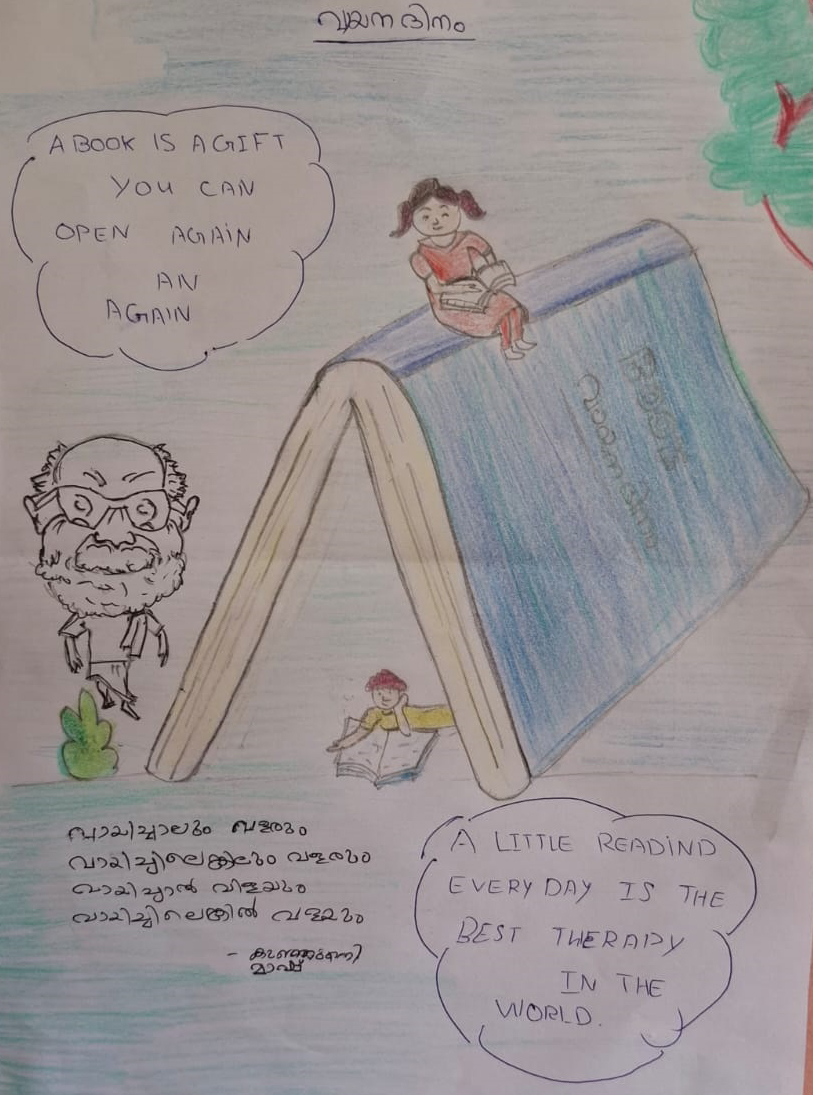 വായന ദിനം
A BOOK IS A GIFT
YOU CAN
OPEN AGAIN
AN
AGAIN
വായനദിനം
വായിച്ചാലും വളരും
വായിച്ചിലെങ്കിലും വളരും
വായിച്ചാൽ വിളയും
വായിച്ചിലെങ്കിൽ വളയും
- കുഞ്ഞുണ്ണി
മാഷ്
A LITTLE READIND
EVERY DAY IS THE
BEST THERAPY
IN THE
WORLD.